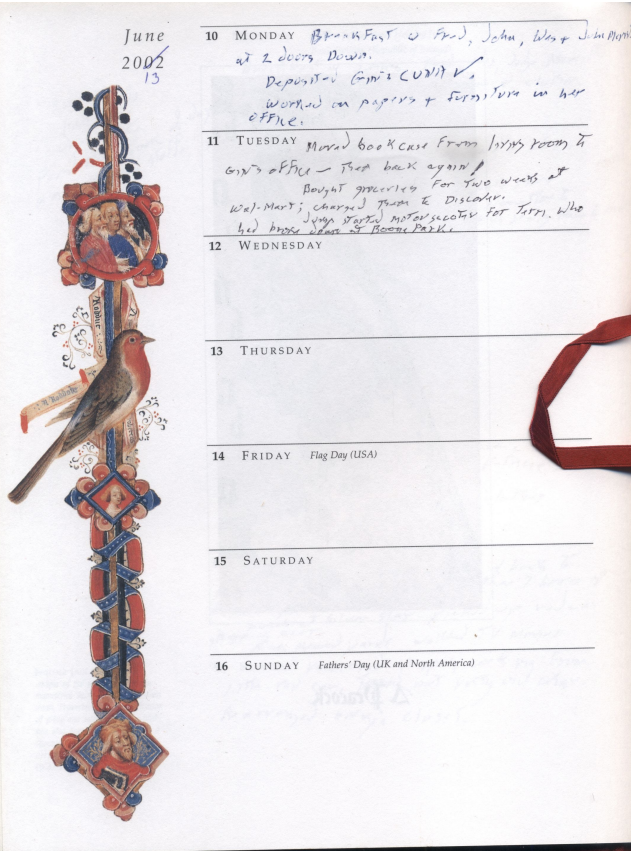 June
2002
13
10 MONDAY Breakfast w Fred, John, Wes + John
at 2 doors Down.
Deposited Gin's CUNA ✓.
Worked on papers + furniture in her
office.
11 TUESDAY Moved bookcase from living room to
Gin's office – then back again!
Bought groceries for two weeks at
Wal-Mart; charged them to Discover.
Jump started motorscooter for Terri. Who
had broke down at Boone Park.
12 WEDNESDAY
13 THURSDAY
14 FRIDAY Flag Day (USA)
15 SATURDAY
16 SUNDAY Fathers' Day (UK and North America)